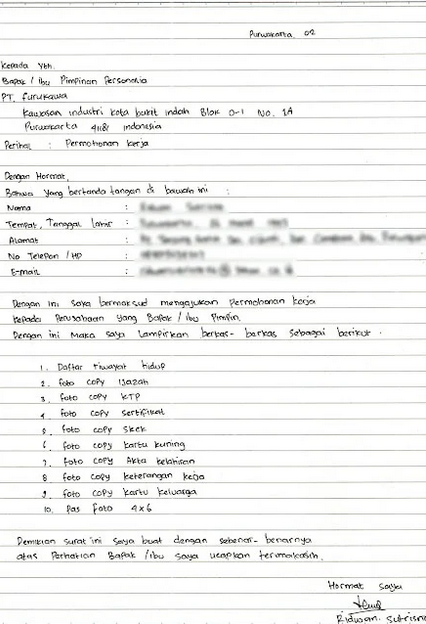 Purwakarta, 02
Kepada Yth.
Bapak / Ibu Pimpinan Personalia
PT. Furukawa
Kawasan industri kota bukit indah Blok D-1 No. 1A
Purwakarta 41181 Indonesia
Perihal : Permohonan kerja
Dengan Hormat,
Bahwa yang bertanda tangan di bawah ini :
Nama :
Tempat, Tanggal lahir :
Alamat :
No Telepon / HP :
E-mail :
Dengan ini saya bermaksud mengajukan Permohonan kerja
kepada Perusahaan yang Bapak / Ibu Pimpin.
Dengan ini maka saya lampirkan berkas-berkas sebagai berikut.
1. Daftar riwayat hidup
2. foto copy Ijazah
3. foto copy KTP
4. foto copy sertifikat
5. foto copy SKCK
6. foto copy kartu kuning
7. foto copy Akta kelahiran
8. foto copy keterangan kerja
9. foto copy kartu keluarga
10. Pas foto 4x6
Demikian surat ini saya buat dengan sebenar-benarnya
atas Perhatian Bapak / Ibu saya ucapkan terimakasih.
Hormat saya
Ridwan Sutrisna